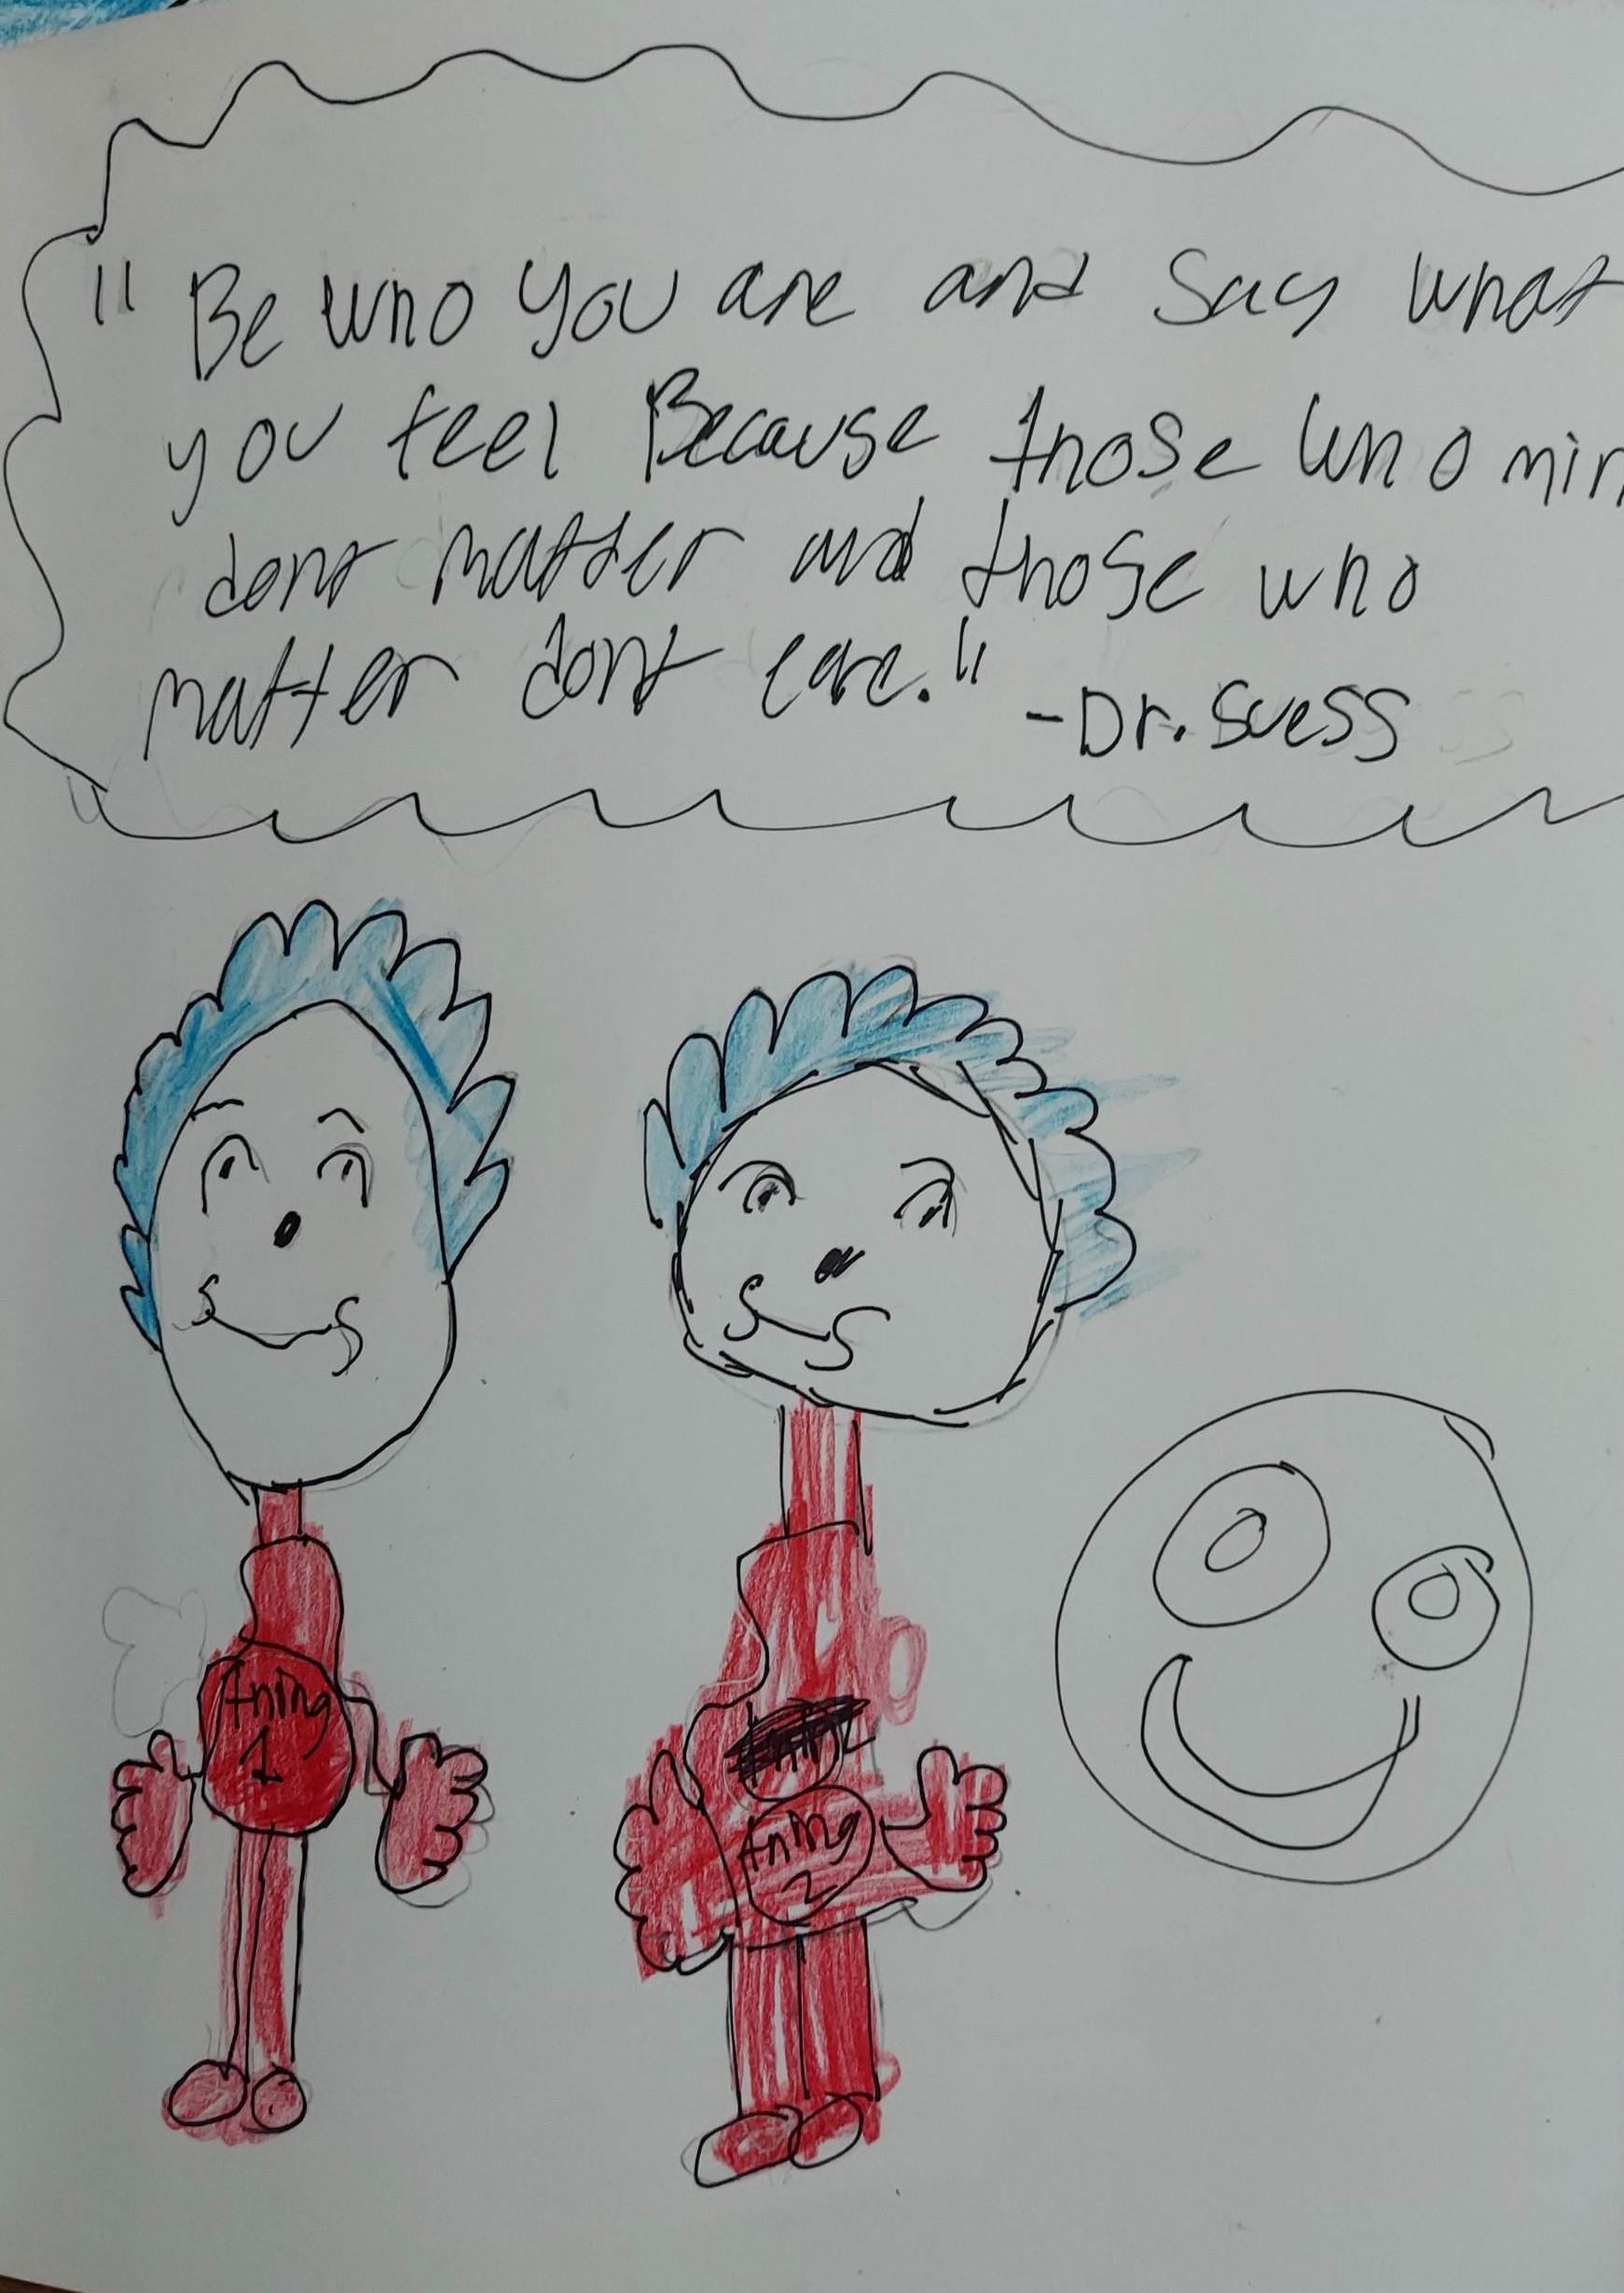 "Be who you are and say what
you feel Because those who min
dont matter and those who
matter dont care."
-Dr. Suess
thing
1
thing
2